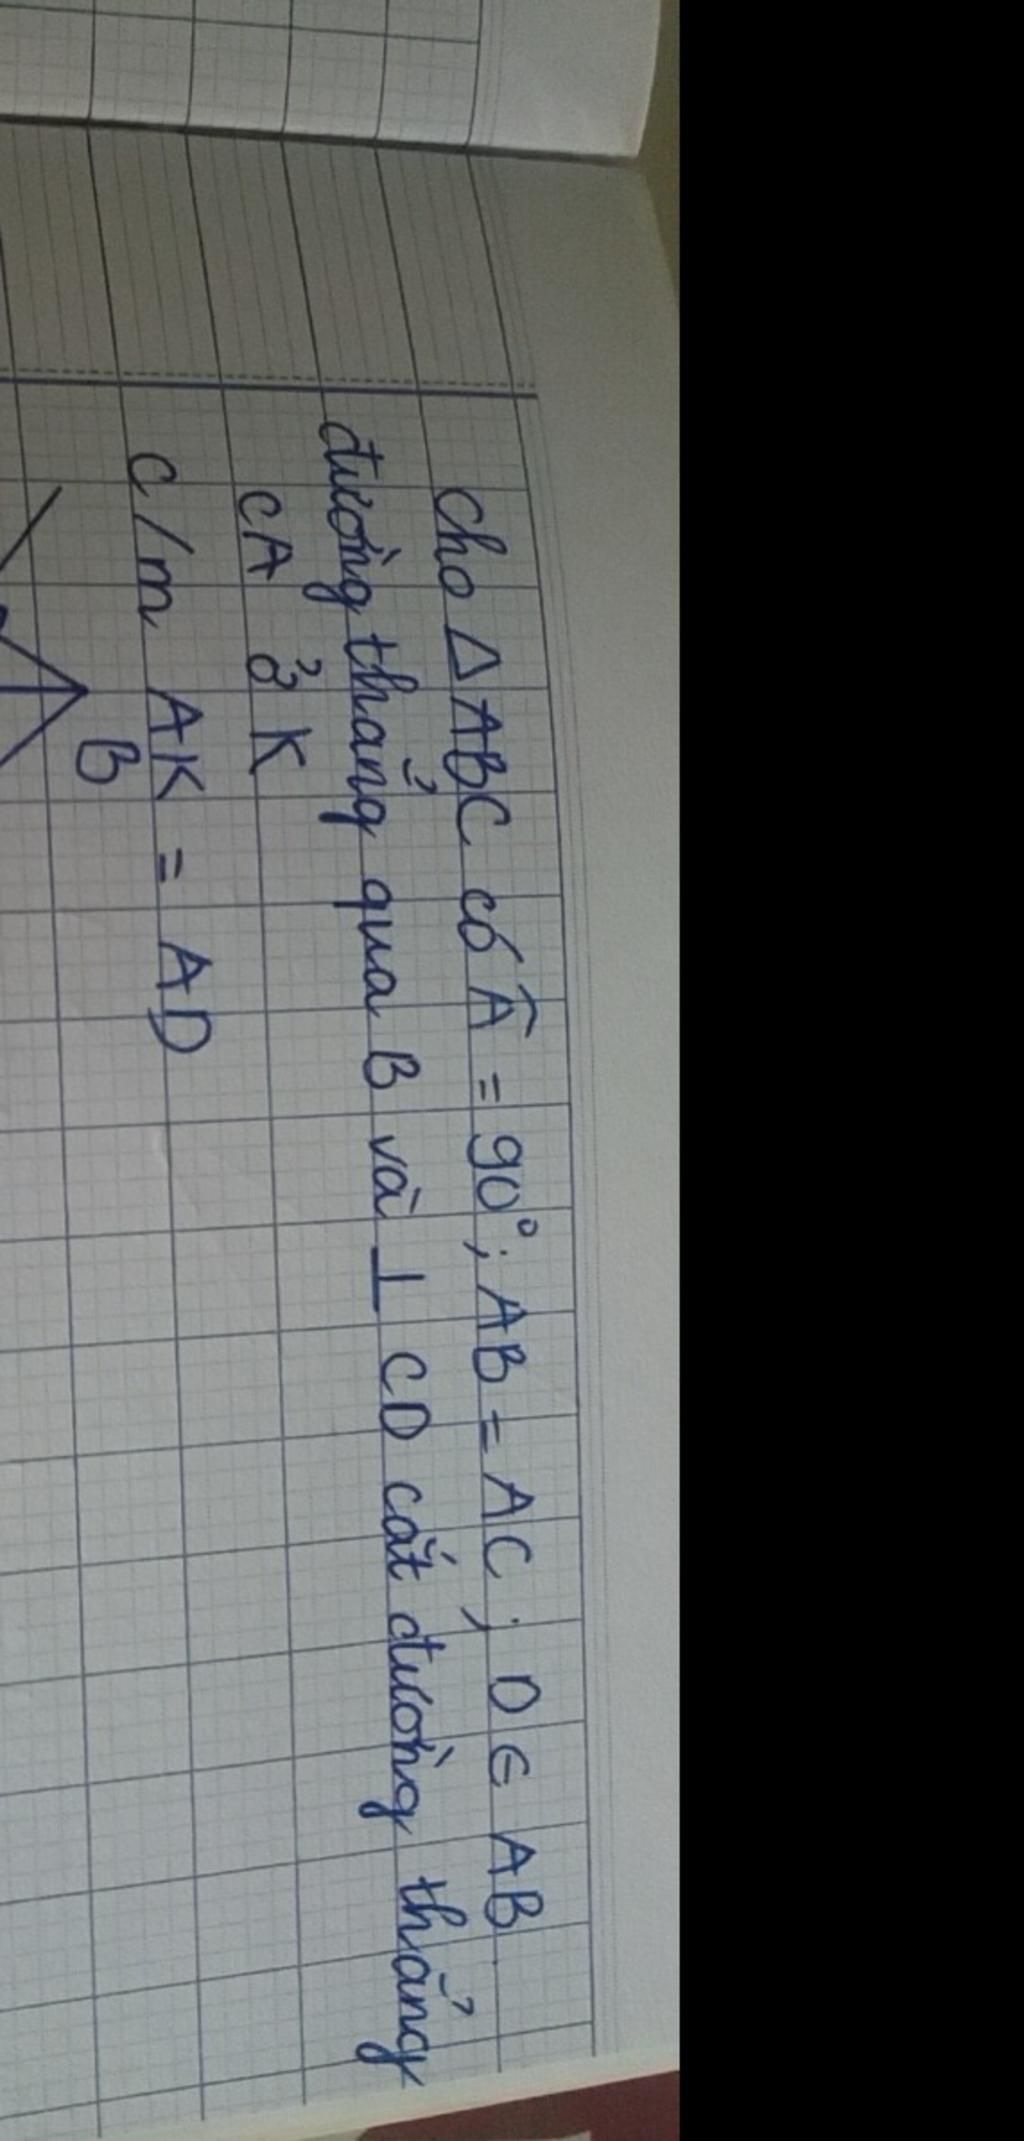 Cho △ABC có Â = 90°; AB = AC; D ∈ AB
đường thẳng qua B và ⊥ CD cắt đường thẳng
CA ở K
C/m AK = AD
B